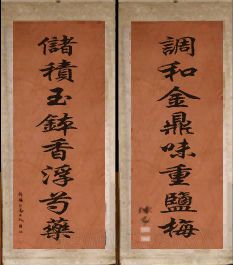 調和金鼎味重鹽梅
儲積玉鉢香浮芍藥